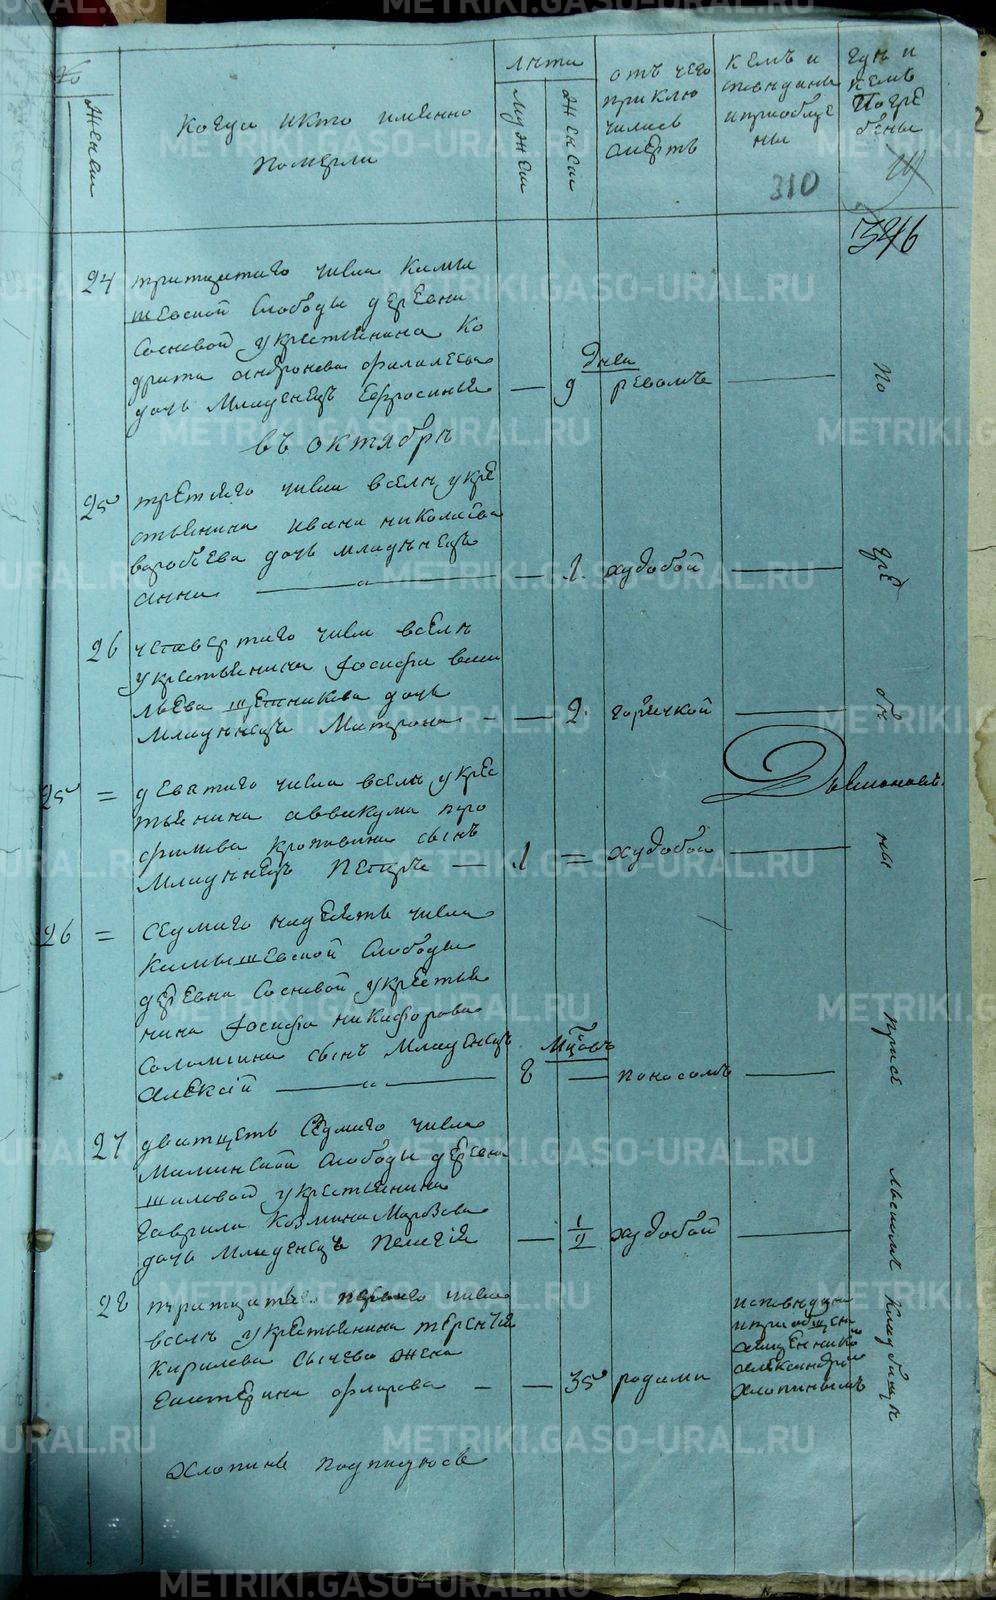 №
Женск
Когда и кто имянно
померли
лета
Мужеск
Женск
отъ чего
приклю
чилась
смерть
кемъ и
споведаны
и приобще
ны
где и
кемъ
Погре
бены
310
346
24
тритцатаго числа Камы
шевской Слободы деревни
Сосновой у крестьянина Ко
драта Андронова Фалалеева
дочь Младенецъ Ефросинья
Дней
9
ревомъ
въ октябре
25
третьяго числа в селе у кре
стьянина Ивана Николаева
Воробьева дочь младенецъ
Анна
1
худобой
26
четвертаго числа в селе
у крестьянина Иосифа Васи
льева Щетникова дочь
Младенецъ Матрона
2
горячкой
25
девятаго числа в селе у крес
тьянина Аввакума Про
фильева Кропивина сынъ
Младенецъ Петръ
1
худобой
26
Седмаго надесять числа
Камышевской Слободы
деревни Сосновой у крестья
нина Иосифа Никифорова
Соломеина сынъ Младенецъ
Алексий
мцовъ
8
поносомъ
27
дватцеть Седмаго числа
Маминской Слободы деревни
Шиловой у крестьянина
Гаврила Козмина Морозова
дочь Младенецъ Пелагия
1/2
худобой
28
тритцеть перваго числа
в селе у крестьянина Терентья
Кирилова Сычева жена
Екатерина Флорова
35
родами
исповедана
и приобщена
священникомъ
Александромъ
Хлопинымъ
по
гре
бе
ны
при се
льскомъ
кладбище
Хлопинъ подписуюсь